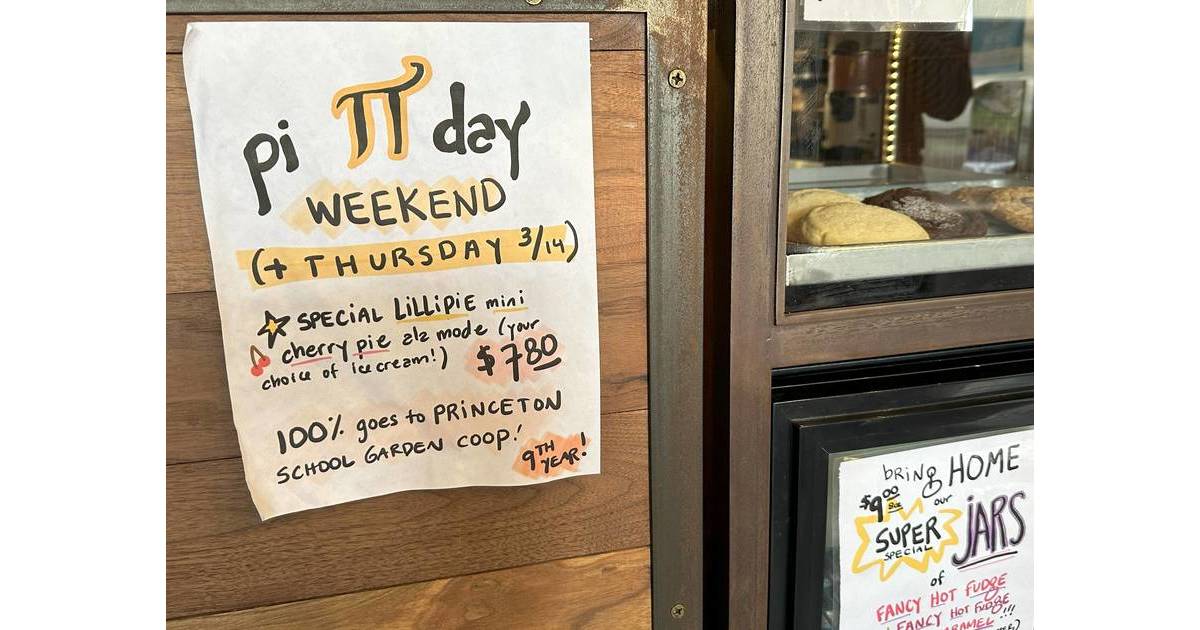 pi π day
WEEKEND
(+ THURSDAY 3/14)
SPECIAL LILLIPIE mini
cherry pie ala mode (your
choice of ice cream!) $7.80
100% goes to PRINCETON
SCHOOL GARDEN COOP!
9TH
YEAR!
bring HOME
$9.00 our
SUPER JARS
SPECIAL
of
FANCY HOT FUDGE
FANCY HOT FUDGE
CARAMEL !!!